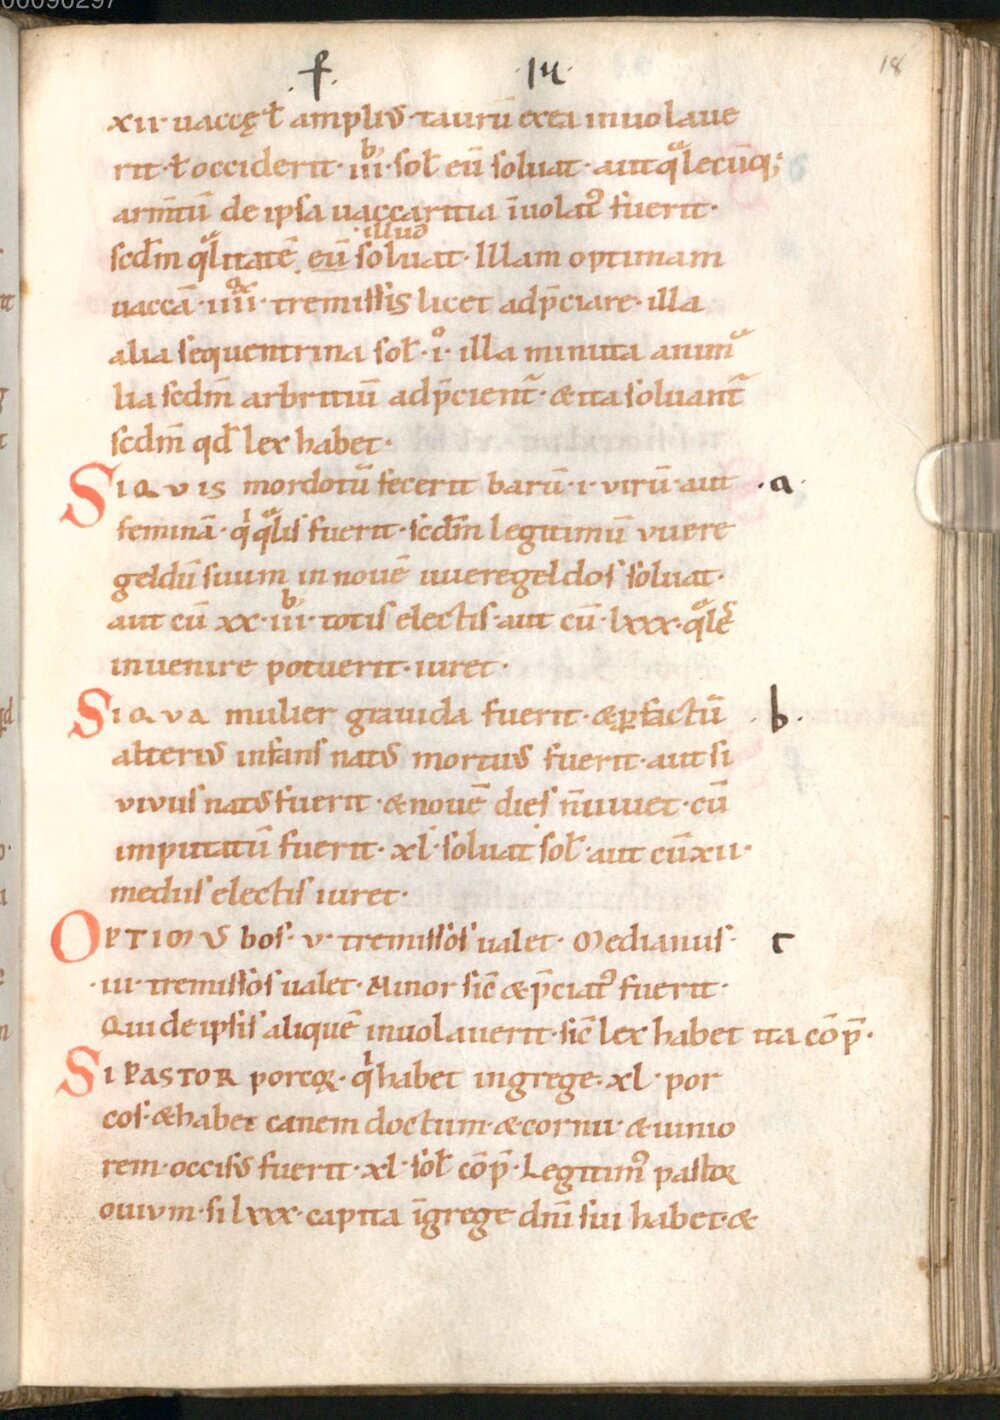 00090297
·f· ·14· 18
xii· uaccę ł ampliꝰ· taurū ex ea inuolaue
rit· ł occiderit· iii^b· sol̄ eū soluat· aut q̃lecūq;
arm̄tū de ipsa uaccaritia īuolat᷒ fuerit·
scd̄m q̃litatē eū illud soluat· Illam optimam
uaccā· iiii^or· tremissis licet adp̄ciare· illa
alia sequentrina sol̄· i^o· illa minuta anim̃
lia scd̄m arbritiū adp̄cient᷑· & ita soluant᷑
scd̄m qd̄ lex habet·
SI QVIS mordotū fecerit barū· i· virū· aut ·a·
feminā· q̇ q̃lis fuerit· scd̄m legitimū vuere
geldū suum in nouē uueregeldos soluat·
aut cū xx·iii^b· totis electis· aut cū· lxxx· q̃les
inuenire potuerit· iuret·
SI QVA mulier grauida fuerit· & ꝑ factū ·b·
alteriꝰ infans natꝰ mortuꝰ fuerit· aut si
vivus natꝰ fuerit· & nouē dies n̄ uiuet· cū
imputatū fuerit· xl· soluat sol̄· aut cū xii·
medius electis iuret·
OPTIMVS bos· v· tremissos ualet· Medianus· c
·iiii· tremissos ualet· Minor sic̄ & p̄ciat᷒ fuerit·
Qui de ipsis aliquē inuolauerit· sic̄ lex habet ita cōp̄·
SI PASTOR porcoꝝ· q̇ habet in grege· xl· por
cos· & habet canem doctum· & cornu· & iunio
rem· occisꝰ fuerit· xl· sol̄ cōp̄· Legitim᷒ pastor
ouium· si lxxx· capita īgrege dn̄i sui habet· &